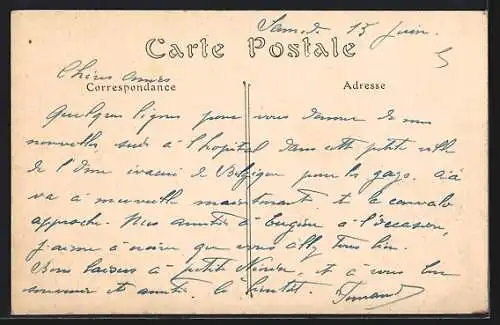 Samd. 13 Juin.
Carte Postale
Chères amies
Correspondance
Adresse
Quelques lignes pour vous donner de mes
nouvelles, suis à l'hôpital dans cette petite ville
de l'Orne de Belgique pour les gaz.
va à merveille maintenant et la convalo
approche. Mes amitiés à Eugène à l'occasion,
j'aime à croire que vous allez tous bien.
Bons baisers à petite et à vous bon
souvenir et amitiés. à bientôt. Fernand